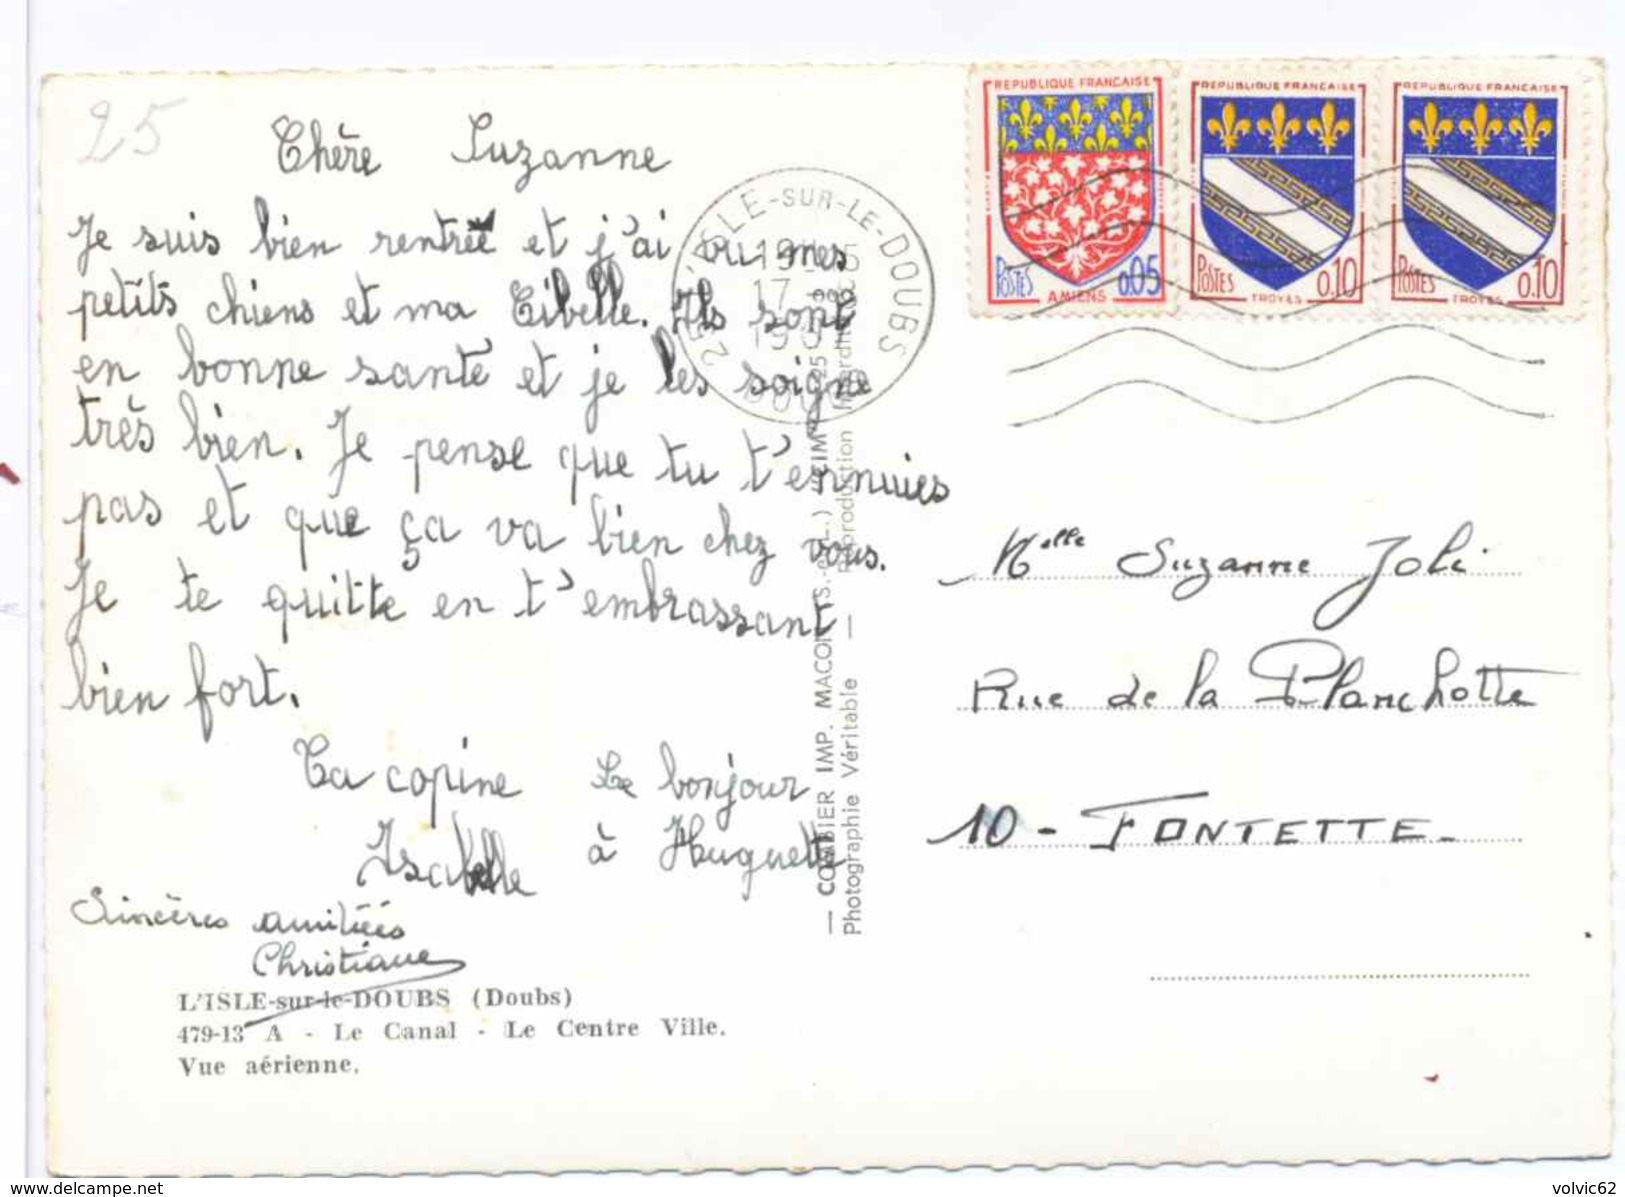 25
Chère Suzanne
Je suis bien rentrée et j'ai vu mes
petits chiens et ma Cibelle. Ils sont
en bonne santé et je les soigne
très bien. Je pense que tu t'ennuies
pas et que ça va bien chez vous.
Je te quitte en t'embrassant
bien fort.
Ta copine
Isabelle
Le bonjour
à Huguette
Sincères amitiées
Christiane
L'ISLE-sur-le-DOUBS (Doubs)
479-13 A - Le Canal - Le Centre Ville.
Vue aérienne.
— COMBIER IMP. MACON (S.-&-L.) "CIM"
Photographie Véritable — Reproduction Interdite
25 L'ISLE-SUR-LE-DOUBS
DOUBS
REPUBLIQUE FRANÇAISE
POSTES 0.05
AMIENS
REPUBLIQUE FRANÇAISE
POSTES 0.10
TROYES
REPUBLIQUE FRANÇAISE
POSTES 0.10
TROYES
Melle Suzanne Joli
Rue de la Planchotte
10 - FONTETTE.
www.delcampe.net
volvic62